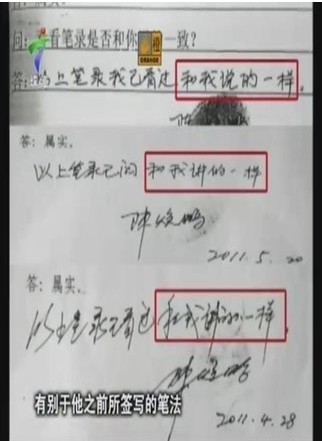 问：看笔录是否和你 一致？
橙
ORANGE
答：以上笔录我已看过 和我说的一样。
陈
答：属实。
以上笔录已阅 和我讲的一样
陈
2011.5.20
答：属实。
以上笔录已看过 和我讲的一样。
陈
有别于他之前所签写的笔法
2011.4.28